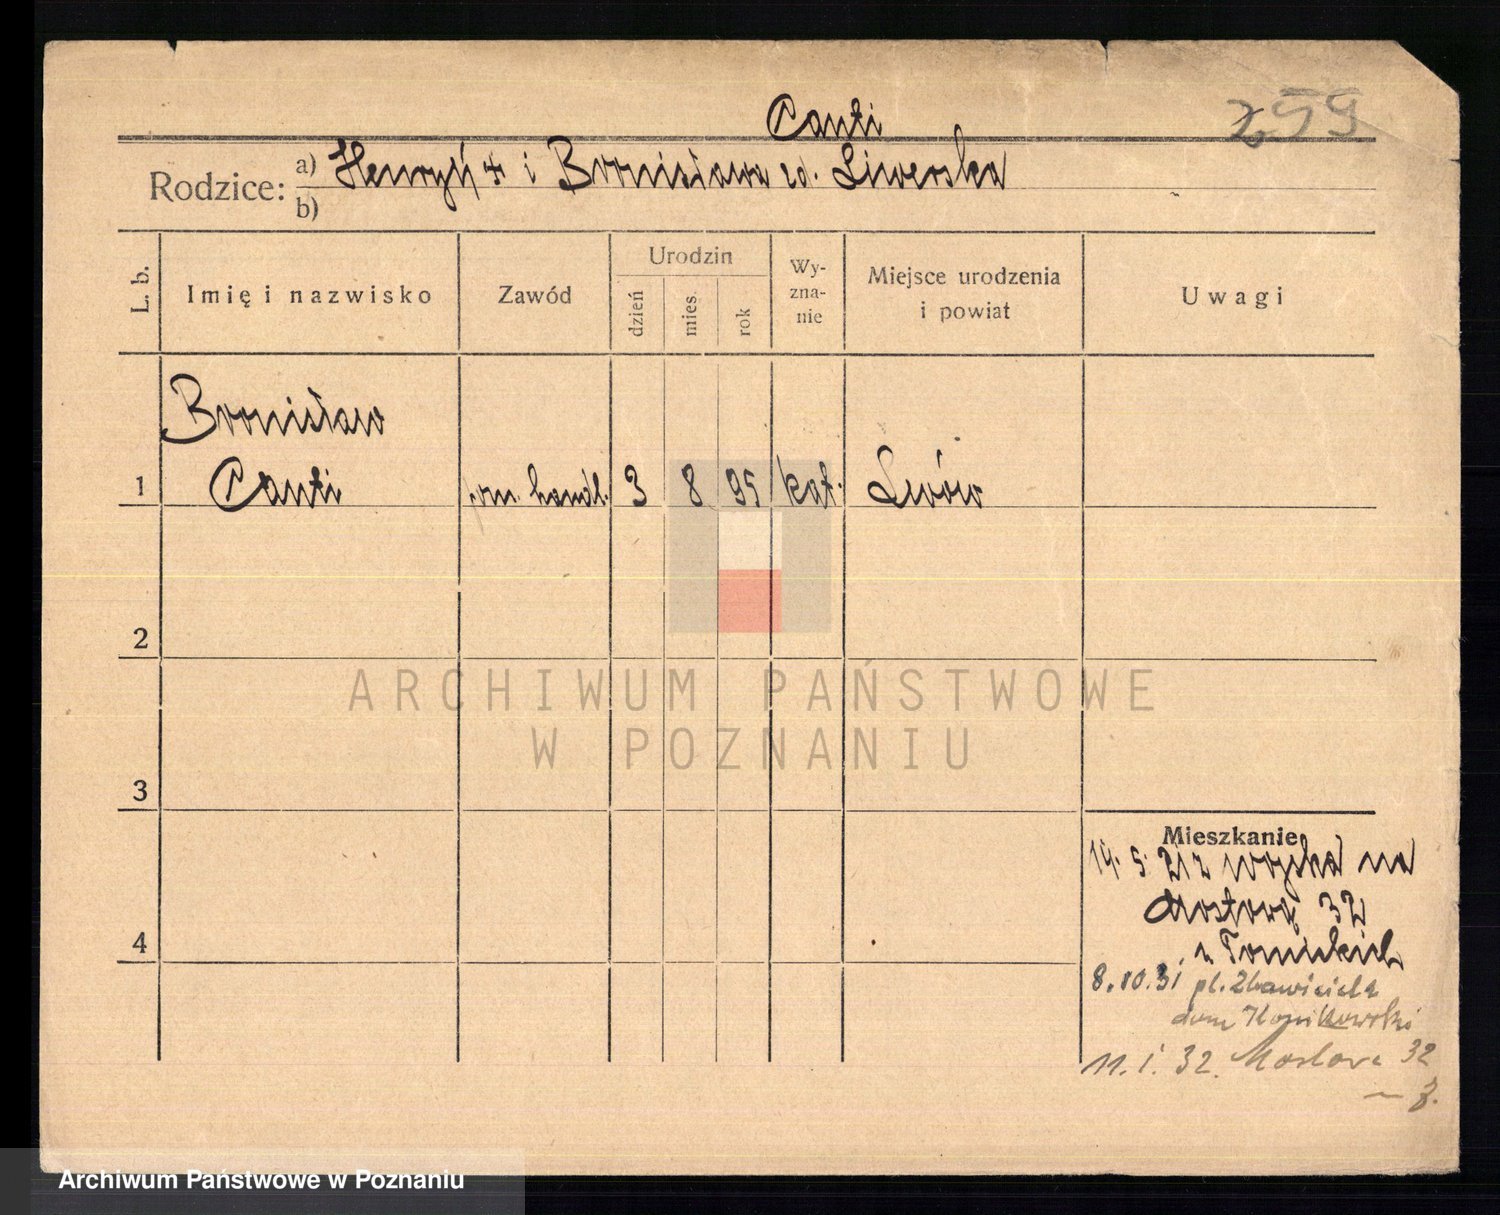 259
Canti
Rodzice: a) Henryk + i Bronisława zd. Liwerska
b)
L. b.
Imię i nazwisko
Zawód
Urodzin
dzień
mies.
rok
Wy-
zna-
nie
Miejsce urodzenia
i powiat
Uwagi
Bronisław
1 Canti pom. handl. 3 8 95 kat. Lwów
2
ARCHIWUM PAŃSTWOWE
W POZNANIU
3
4
Mieszkanie
14. 5. 21 z wojska na
Mostową 32
u Tomickich
8.10.31 pl. Zbawiciela
dom
11. I. 32. Mostowa 32
Archiwum Państwowe w Poznaniu